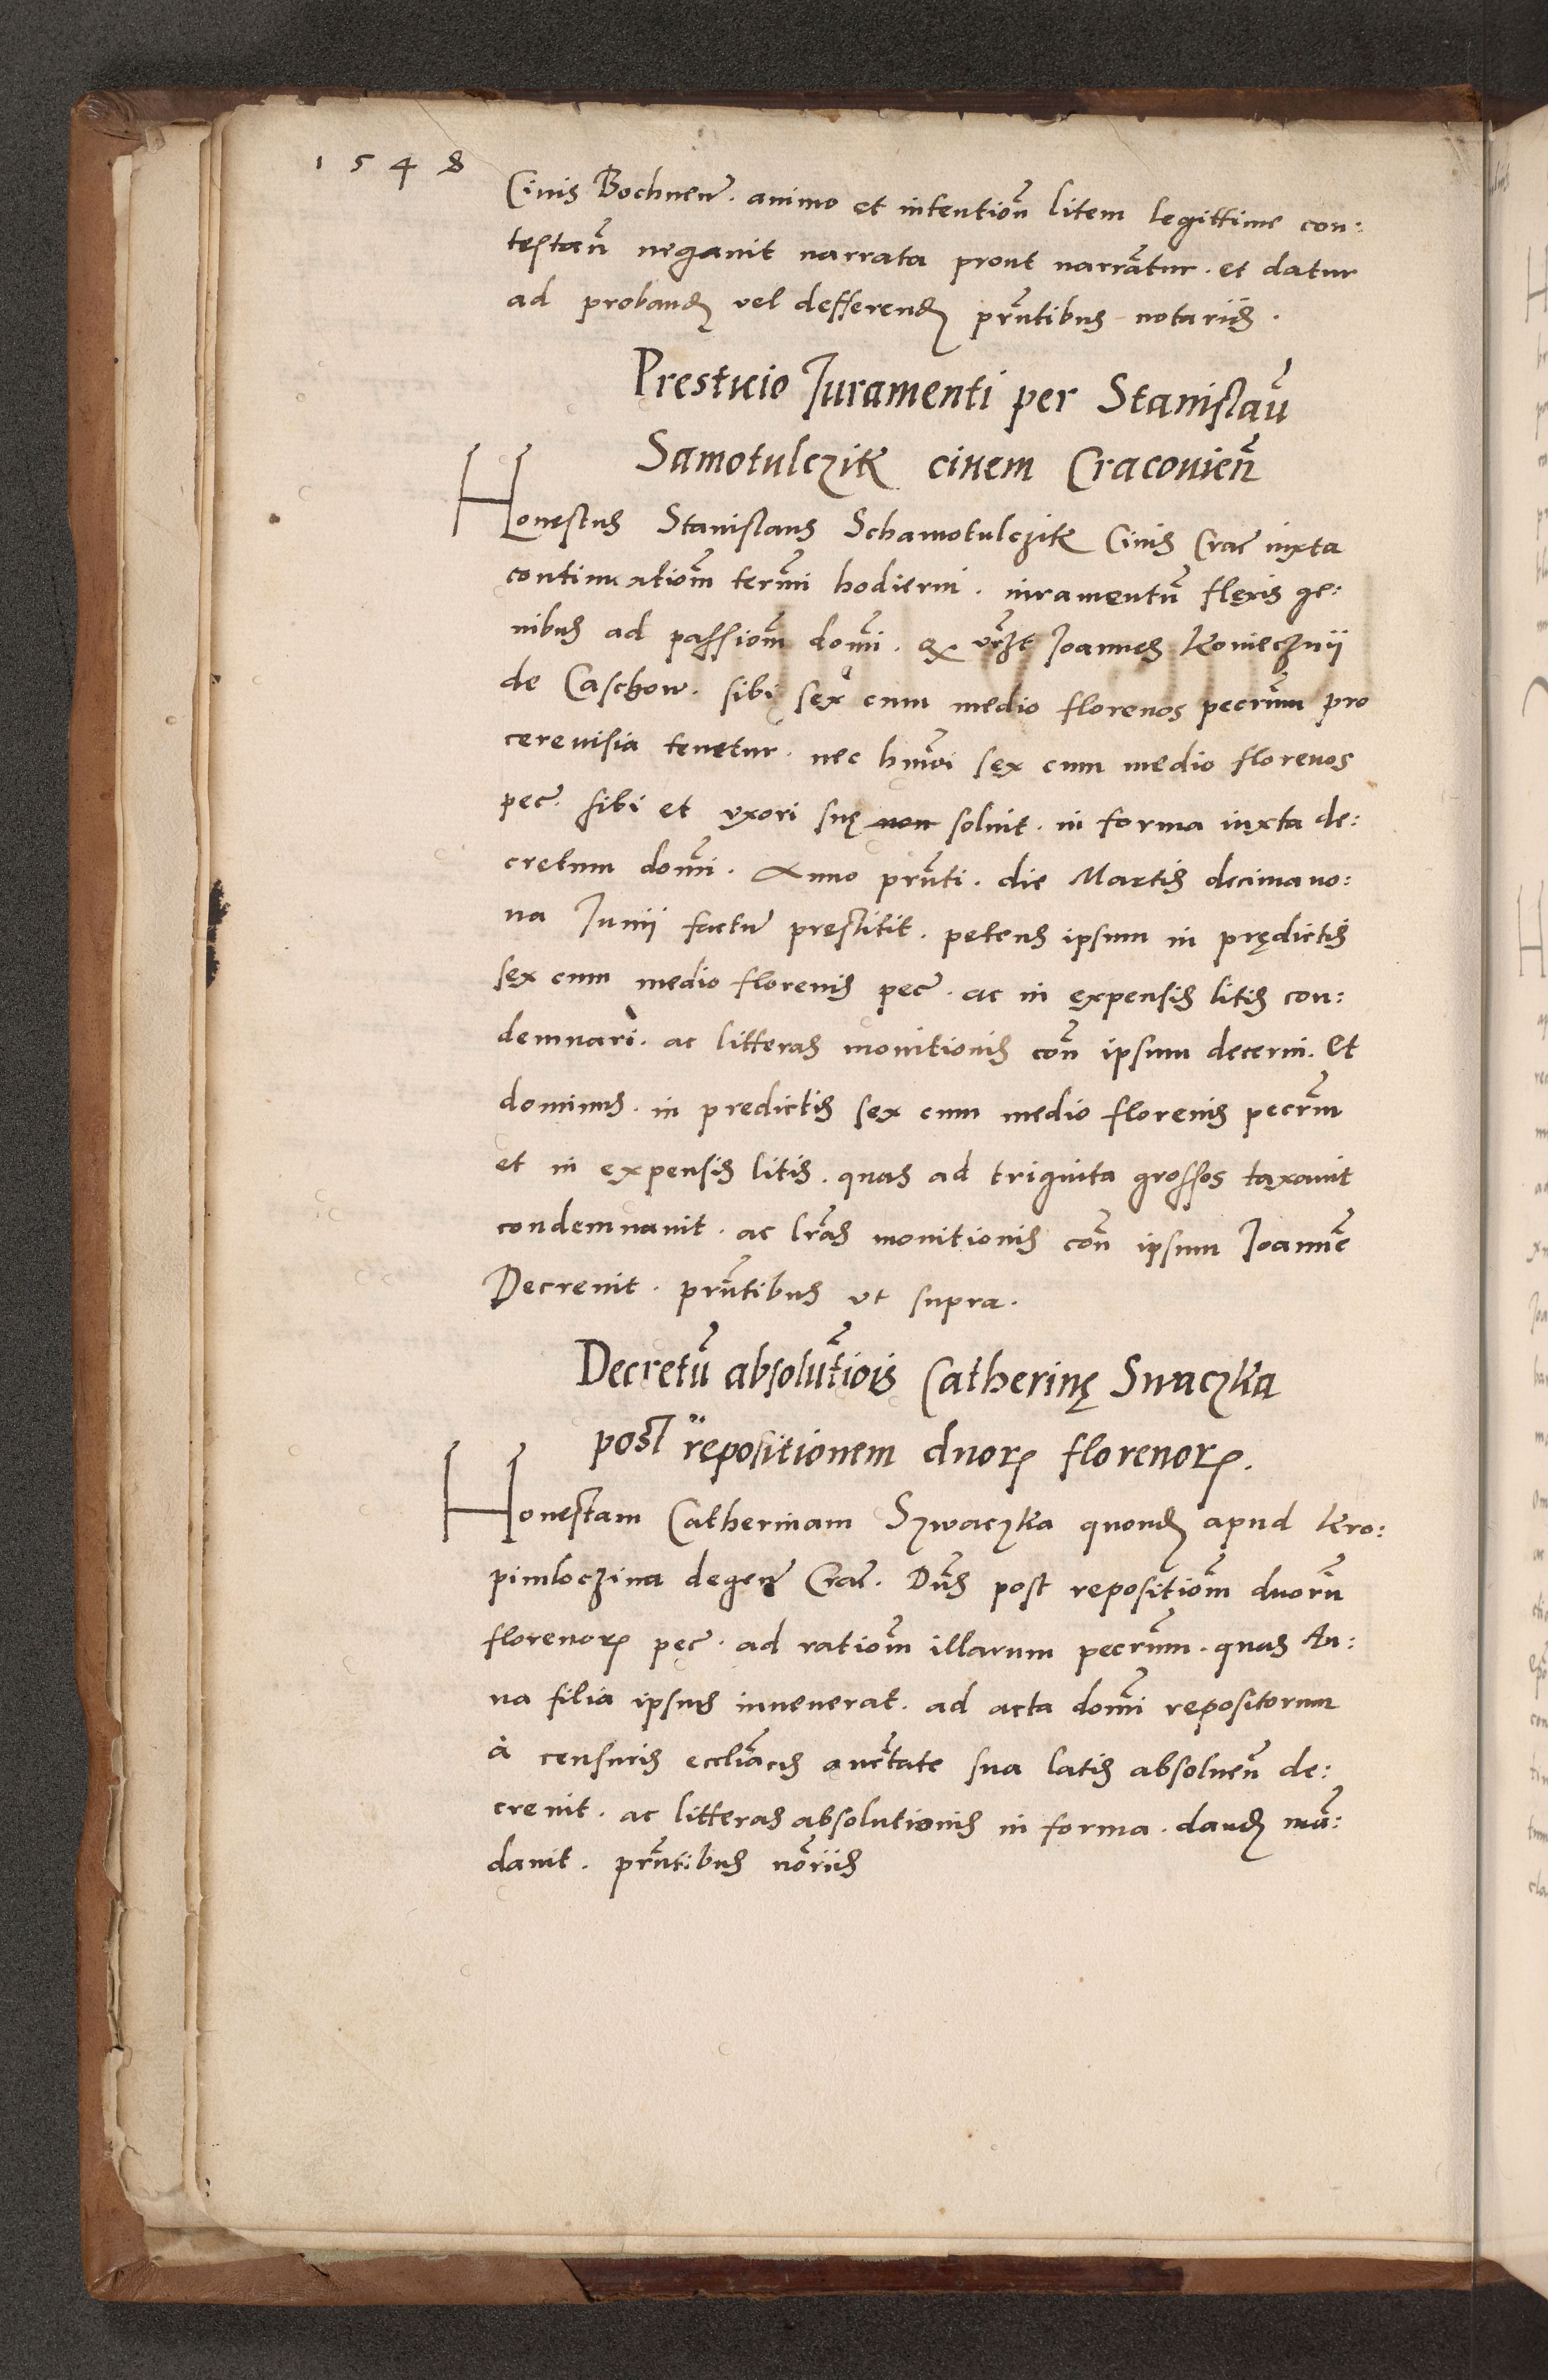 1548
Civis Bochnen̄. animo et intentioñ litem legittime con:
testañ negavit narrata prout narrãtur. et datur
ad probandꝫ vel defferendꝫ pr̃ntibus notariis.
Presticio Juramenti per Stanislaũ
Samotulczik civem Cracovieñ
Honestus Stanislaus Schamotulczik Civis Crac̃ iuxta
continuatiom̃ term̃i hodierni. iuramentũ flexis ge:
nibus ad passiom̃ dom̃i. Joannes Koniecznii
de Caschow. sibi sex cum medio florenos pecr̃um pro
cerevisia tenetur. nec hm̃oi sex cum medio florenos
pec̃. sibi et uxori suę non solvit. in forma iuxta de:
cretum dom̃i. Anno pr̃nti. die Martis decimano:
na Junii factū prestitit. petens ipsum in prędictis
sex cum medio florenis pec̃. ac in expensis litis con:
demnari. ac litteras monitionis coñ ipsum decerni. Et
dominus. in predictis sex cum medio florenis pecr̃m
et in expensis litis. quas ad triginta grossos taxavit
condemnavit. ac lr̃as monitionis coñ ipsum Joannẽ
Decrevit. pr̃ntibus ut supra.
Decretũ absolutiõis Catherinę Swaczka
post repositionem duorꝫ florenorꝫ.
Honestam Catherinam Szwaczka quondꝫ apud Kro:
pimloczina degeñ Crac̃. Dñs post repositiom̃ duorũ
florenorꝫ pec̃. ad ratiom̃ illarum pecr̃um. quas An:
na filia ipsius invenerat. ad acta dom̃i repositorum
à censuris ecclĩacis auc̃tate sua latis absolveñ de:
crevit. ac litteras absolutionis in forma. dandꝫ mã:
davit. pr̃ntibus nõriis